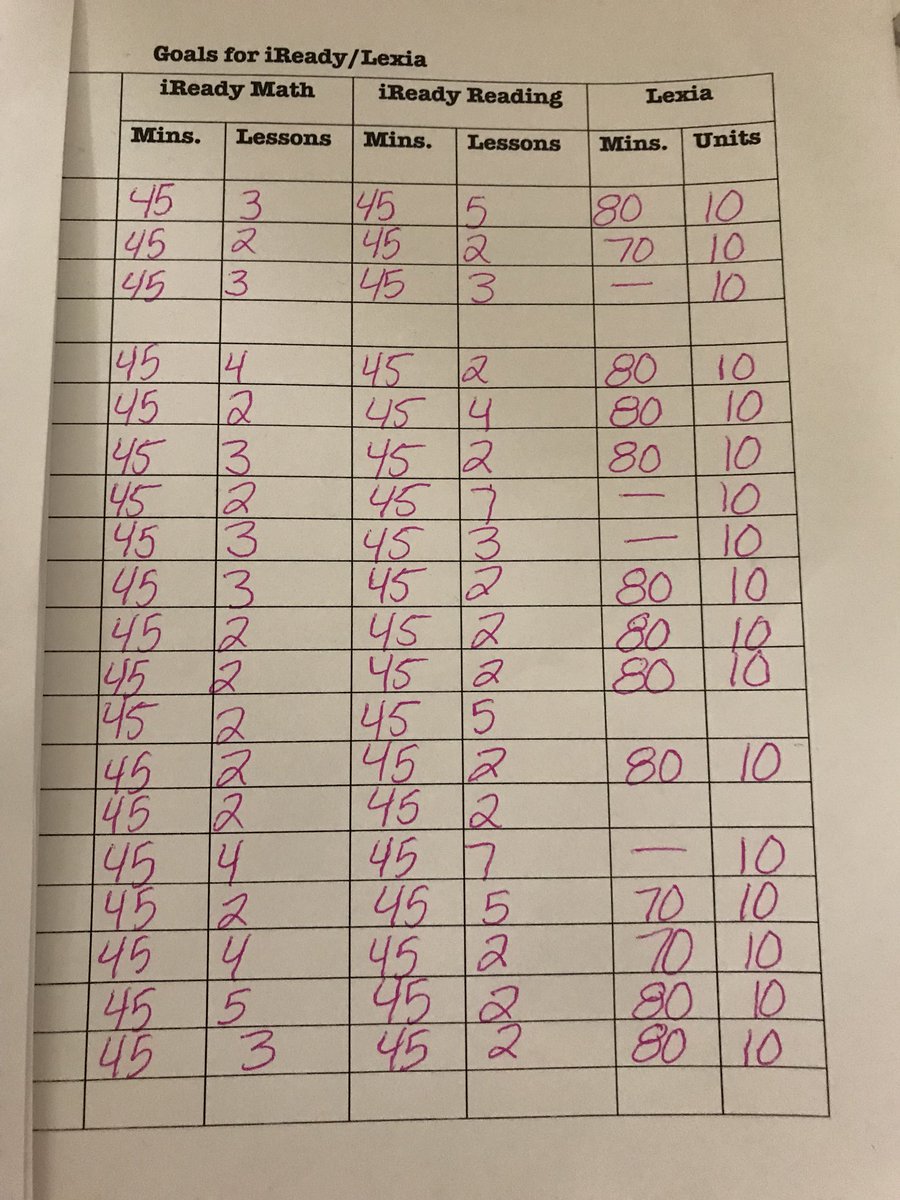 Goals for iReady/Lexia
iReady Math iReady Reading Lexia
Mins. Lessons Mins. Lessons Mins. Units
45 3 45 5 80 10
45 2 45 2 70 10
45 3 45 3 — 10
45 4 45 2 80 10
45 2 45 4 80 10
45 3 45 2 80 10
45 2 45 7 — 10
45 3 45 3 — 10
45 3 45 2 80 10
45 2 45 2 80 10
45 2 45 2 80 10
45 2 45 5
45 2 45 2 80 10
45 2 45 2
45 4 45 7 — 10
45 2 45 5 70 10
45 4 45 2 70 10
45 5 45 2 80 10
45 3 45 2 80 10